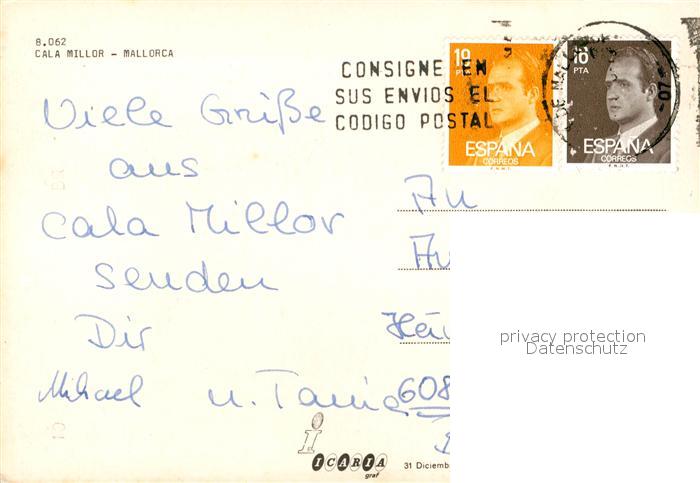 8.062
CALA MILLOR - MALLORCA
CONSIGNE EN
SUS ENVIOS EL
CODIGO POSTAL
10
PTA
ESPAÑA
CORREOS
F.N.M.T.
PTA
ESPAÑA
CORREOS
F.N.M.T.
DE MALLORCA
-07-
Viele Grüße
aus
Cala Millor
senden
Dir
Mihael u. Tanie
An
608
privacy protection
Datenschutz
i
ICARIA
graf
31 Diciemb